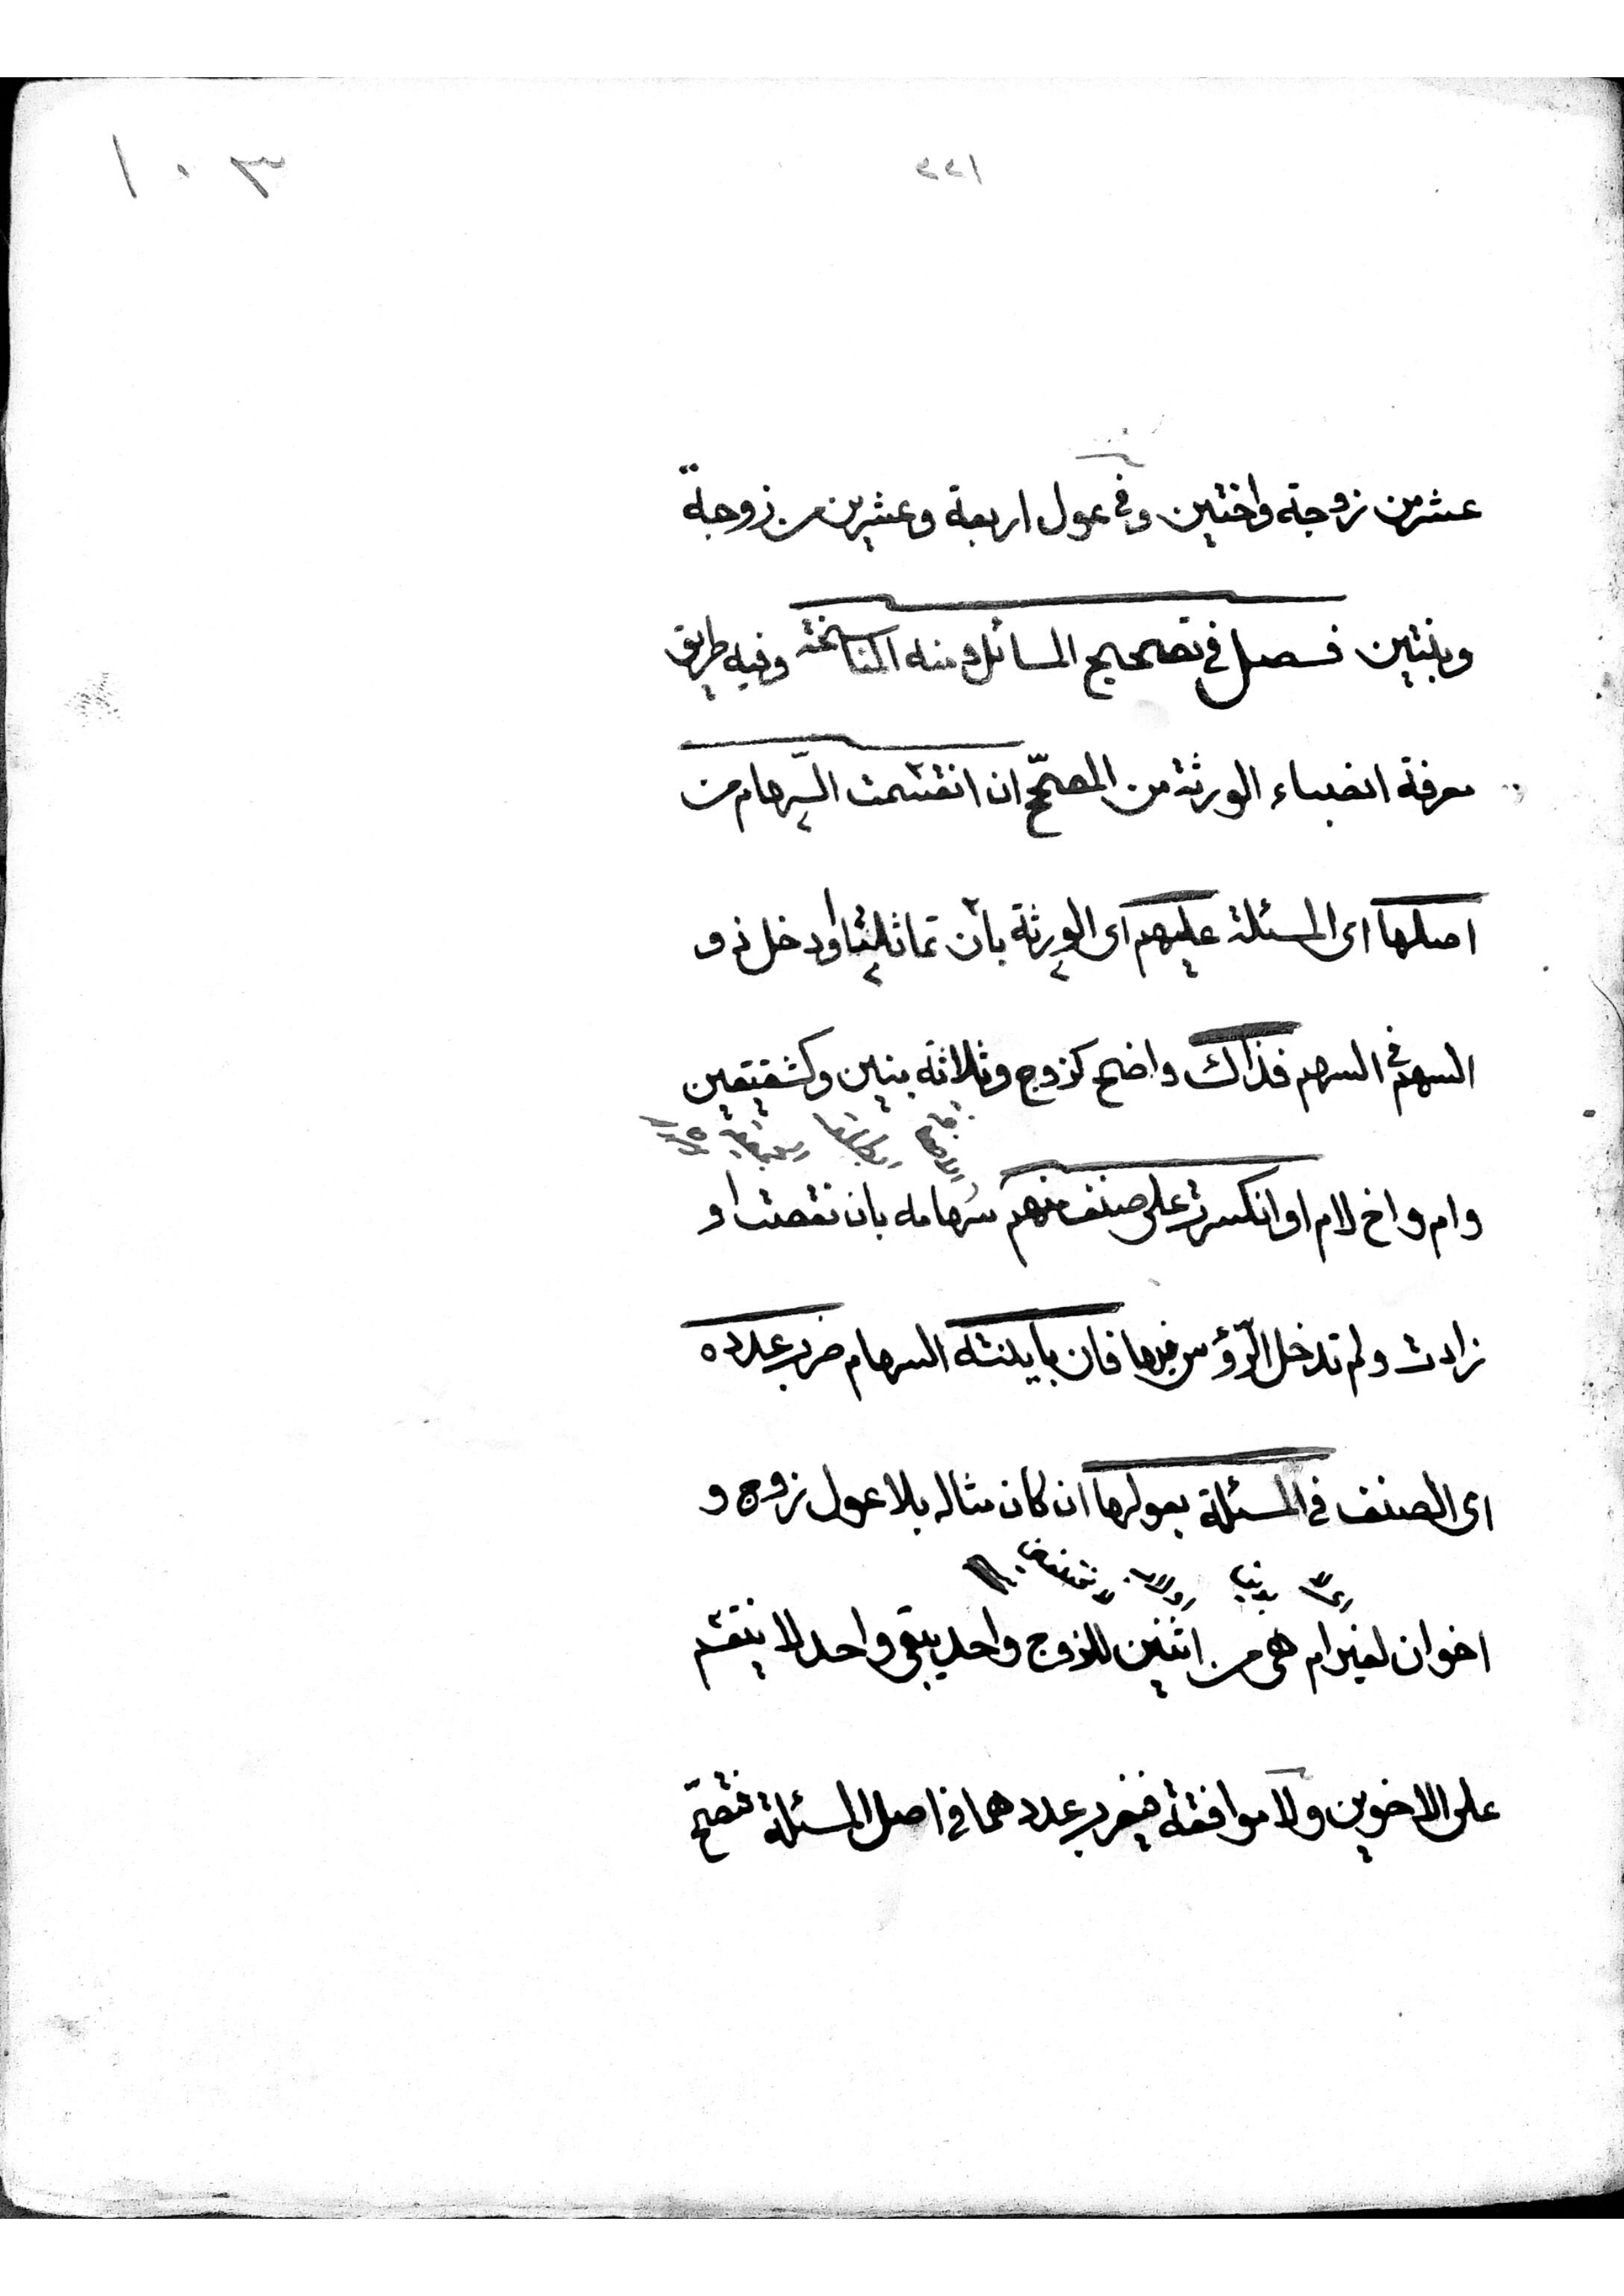 ١٠٣
عشر من زوجة واختين وفي عول اربعة وعشرين من زوجة
وبنتين فصل في تصحيح المسائل ومنه المناسخة وفيه طريق
معرفة انصباء الورثة من المصحّح ان انقسمت السّهام من
اصلها اى المسئلة عليهم اى الورثة بان تماثلتا او دخل ذو
السهم في السهم فذاك واضح كزوج وثلاثة بنين وكشقيقين
وام واخ لام او انكسرت على صنف منهم سهامه بان نقصت او
زادت ولم تدخل الرّؤس فيها فان باينته السهام ضرب عدده
اى الصنف في المسئلة بعولها ان كان مثاله بلا عول زوج و
اخوان لغير ام هى من اثنين للزوج واحد يبقى واحد لا ينقسم
على الاخوين ولا موافقة فيضرب عددهما في اصل المسئلة فتصحّ